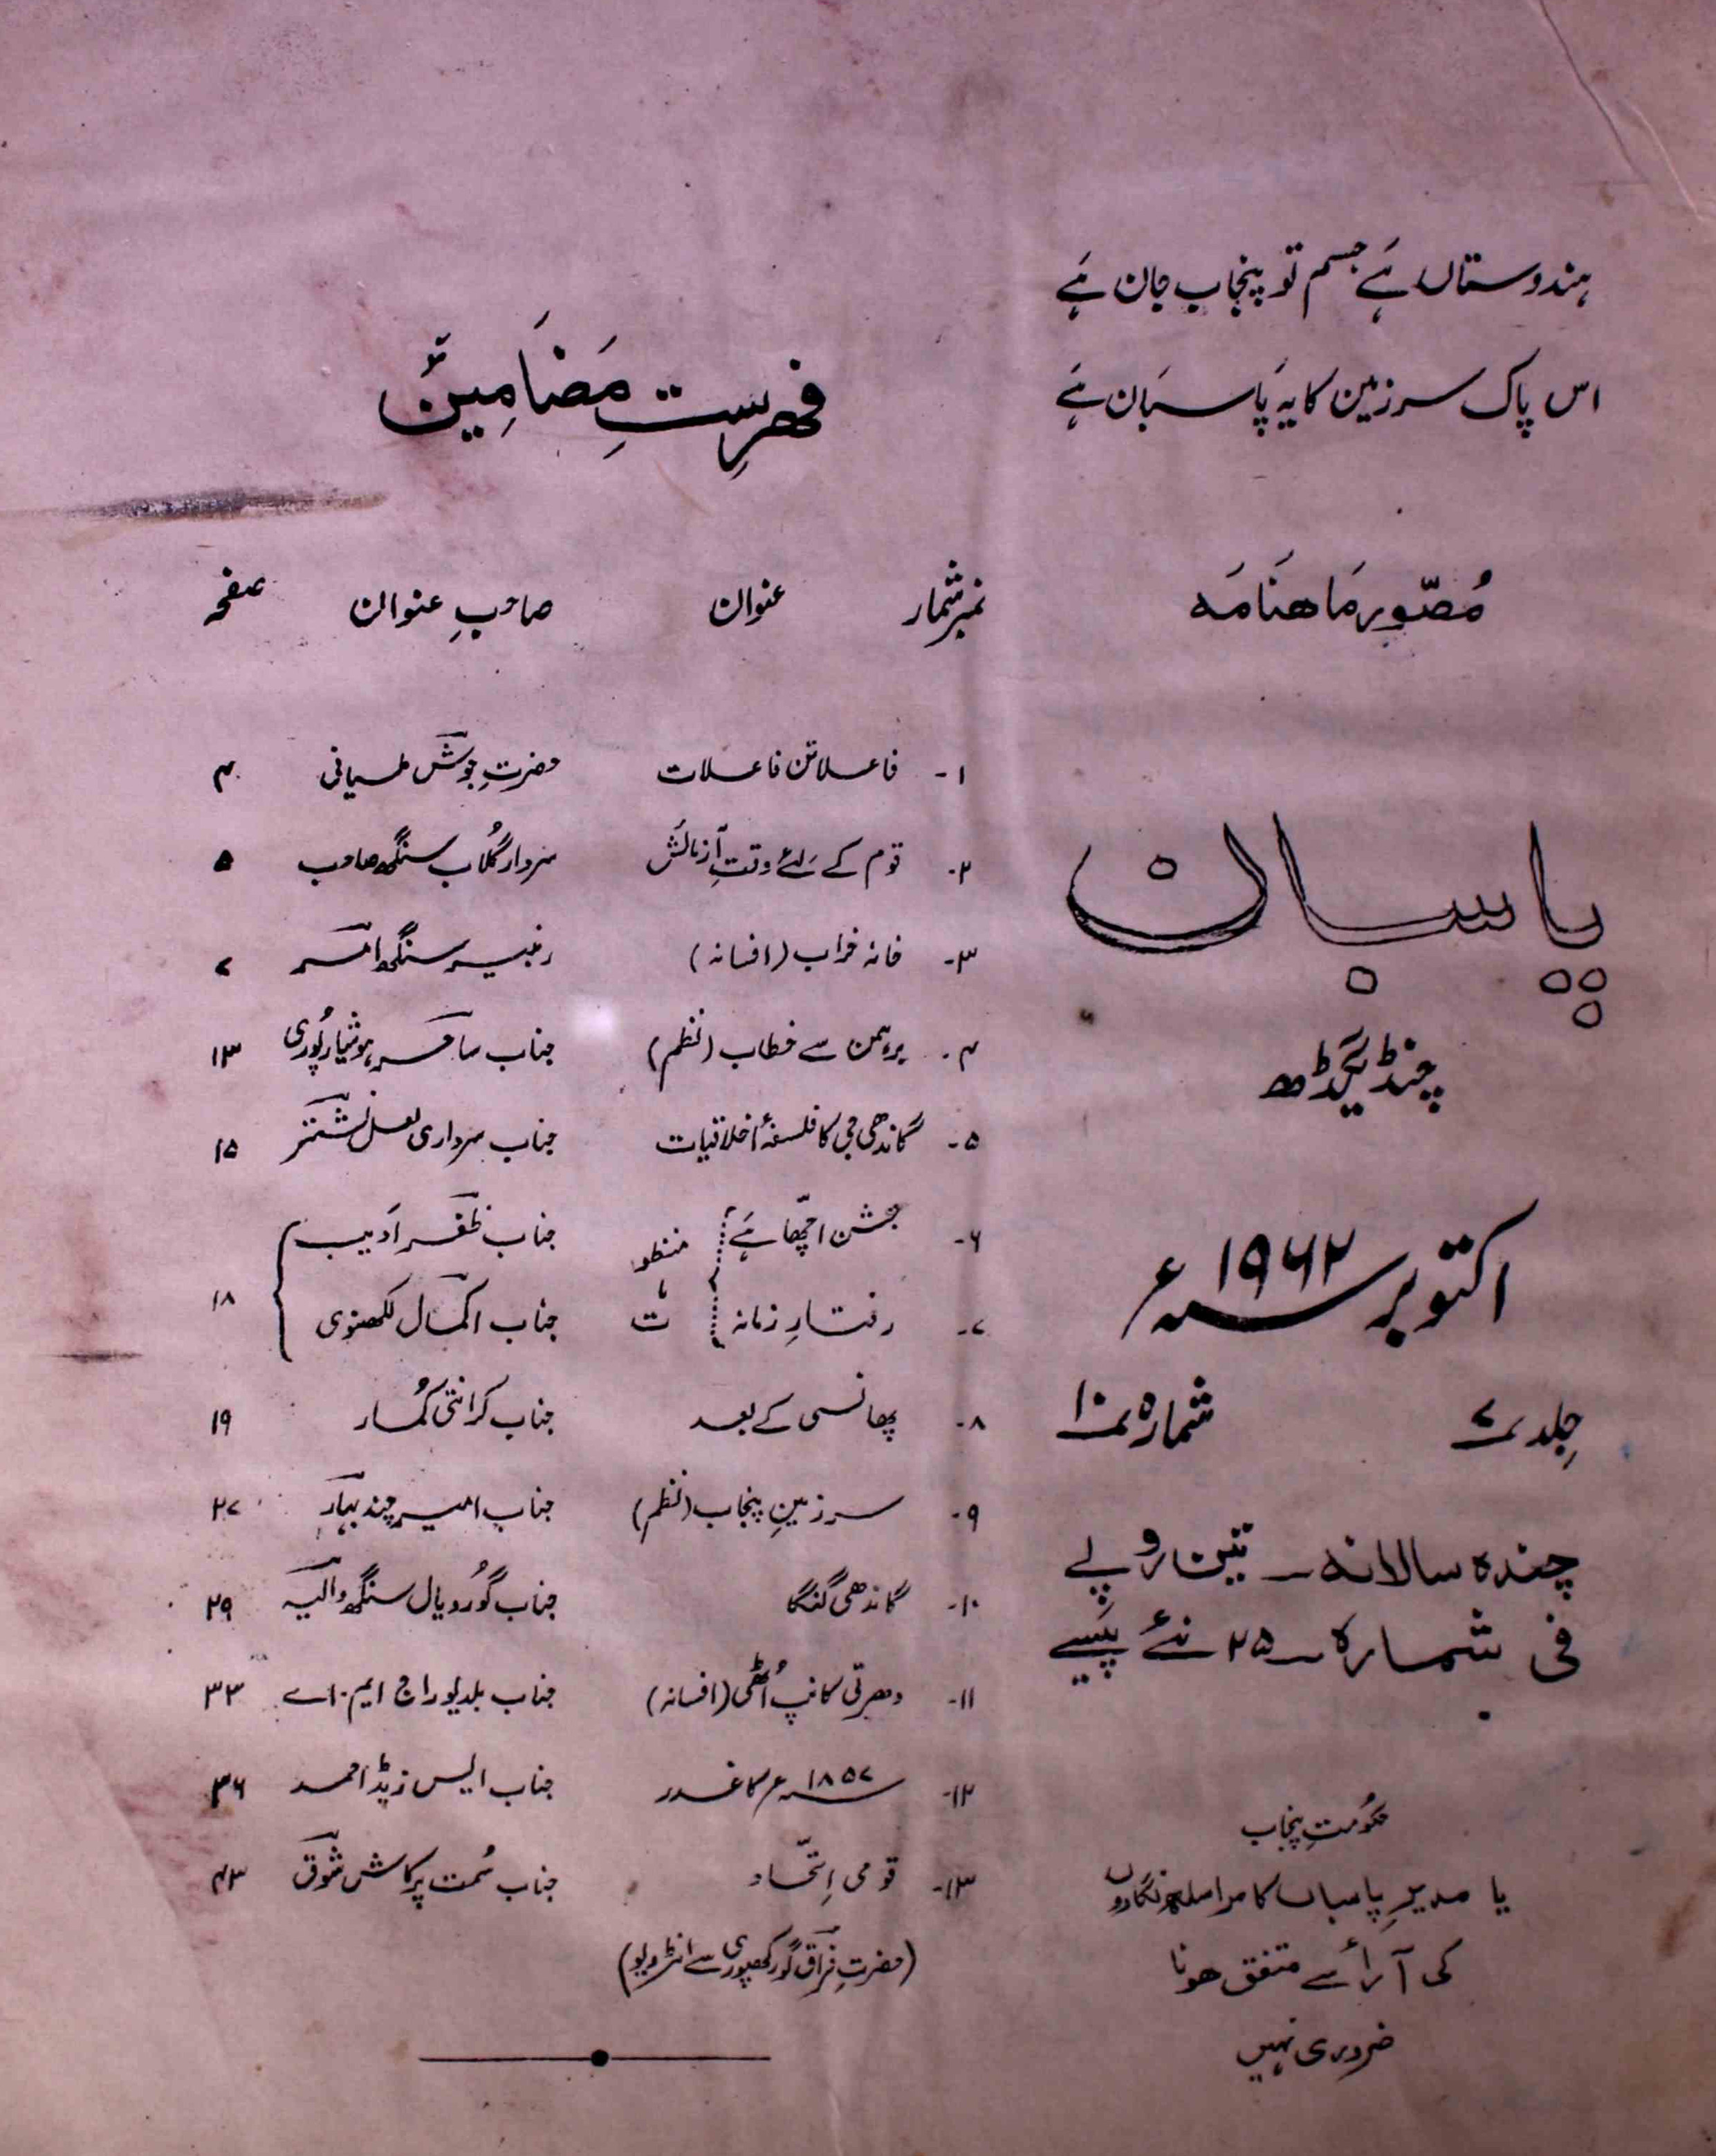 ہندوستاں ہے جسم تو پنجاب جان ہے
اس پاک سرزمین کا یہ پاسبان ہے
مُصوّر ماہنامہ
پاسبان
چنڈیگڑھ
اکتوبر ۱۹۶۲ء
جِلد ۷ شمارہ ۱۰
چندہ سالانہ ـ تین روپے
فی شمارہ ـ ۲۵ نئے پیسے
حکومتِ پنجاب
یا مدیرِ پاسباں کا مراسلہ نگاروں
کی آراٗ سے متفق ہونا
ضروری نہیں
فہرستِ مضامین
نمبر شمار عنوان صاحبِ عنوان صفحہ
۱- فاعلاتن فاعلات حضرتِ جوشؔ ملسیانی ۴
۲- قوم کے لئے وقتِ آزمائش سردار گلاب سنگھ صاحب ۵
۳- خانہ خراب (افسانہ) رنبیر سنگھ امبر ۷
۴- برہمن سے خطاب (نظم) جناب ساحرؔ ہوشیارپُوری ۱۳
۵- گاندھی جی کا فلسفۂ اخلاقیات جناب سرداری لعل نشترؔ ۱۵
۶- جشن اچّھا ہے منظومات جناب ظفرؔ ادیب
۷- رفتارِ زمانہ جناب اکمالؔ لکھنوی ۱۸
۸- پھانسی کے بعد جناب کرانتی کُمار ۱۹
۹- سرزمینِ پنجاب (نظم) جناب امیر چند بہارؔ ۲۷
۱۰- گاندھی گنگا جناب گوردیال سنگھ والیہ ۲۹
۱۱- دھرتی کانپ اُٹھی (افسانہ) جناب بلدیو راج ایم۔اے ۳۳
۱۲- ۱۸۵۷ء کا غدر جناب ایس زیڈ احمد ۳۶
۱۳- قومی اِتّحاد جناب سُمت پرکاش شوقؔ ۴۳
(حضرتِ فراقؔ گورکھپوری سے انٹرویو)